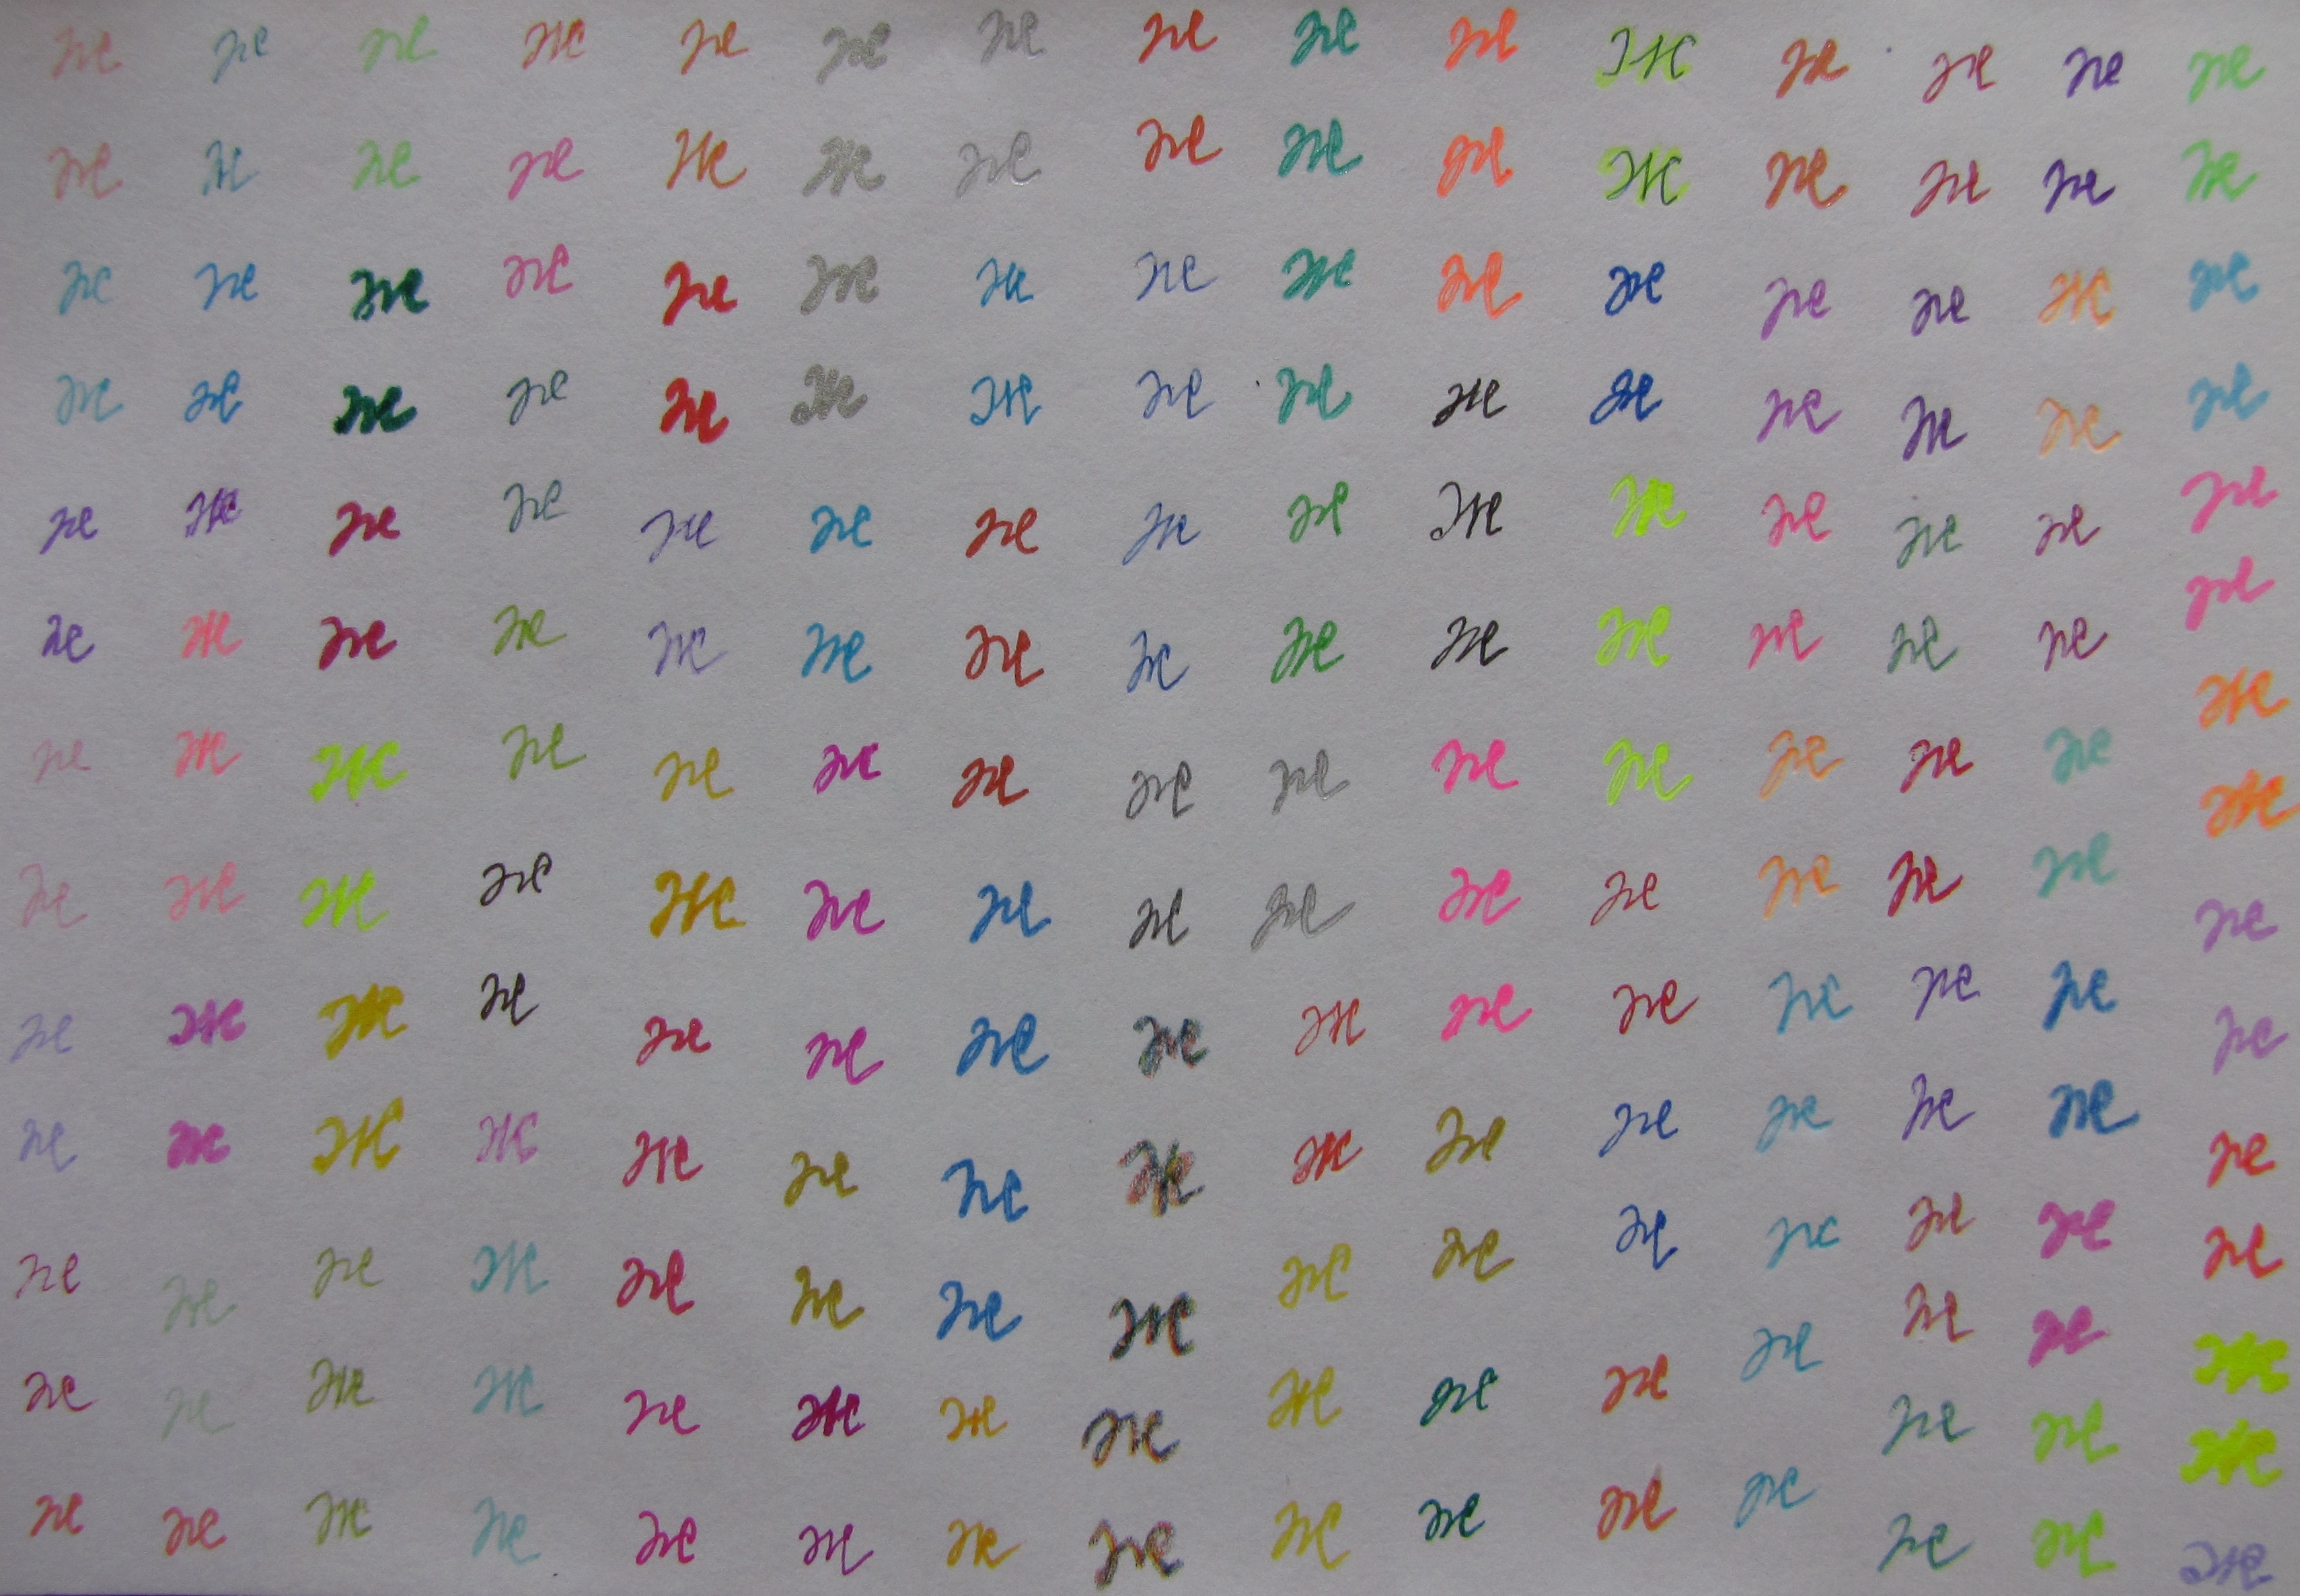 Ж Ж Ж Ж Ж Ж Ж Ж Ж Ж Ж Ж Ж Ж Ж
Ж Ж Ж Ж Ж Ж Ж Ж Ж Ж Ж Ж Ж Ж Ж
Ж Ж Ж Ж Ж Ж Ж Ж Ж Ж Ж Ж Ж Ж Ж
Ж Ж Ж Ж Ж Ж Ж Ж Ж Ж Ж Ж Ж Ж Ж
Ж Ж Ж Ж Ж Ж Ж Ж Ж Ж Ж Ж Ж Ж Ж
Ж Ж Ж Ж Ж Ж Ж Ж Ж Ж Ж Ж Ж Ж Ж
Ж Ж Ж Ж Ж Ж Ж Ж Ж Ж Ж Ж Ж Ж Ж
Ж Ж Ж Ж Ж Ж Ж Ж Ж Ж Ж Ж Ж Ж Ж
Ж Ж Ж Ж Ж Ж Ж Ж Ж Ж Ж Ж Ж Ж Ж
Ж Ж Ж Ж Ж Ж Ж Ж Ж Ж Ж Ж Ж Ж Ж
Ж Ж Ж Ж Ж Ж Ж Ж Ж Ж Ж Ж Ж Ж Ж
Ж Ж Ж Ж Ж Ж Ж Ж Ж Ж Ж Ж Ж Ж Ж
Ж Ж Ж Ж Ж Ж Ж Ж Ж Ж Ж Ж Ж Ж Ж
Ж Ж Ж
Ж